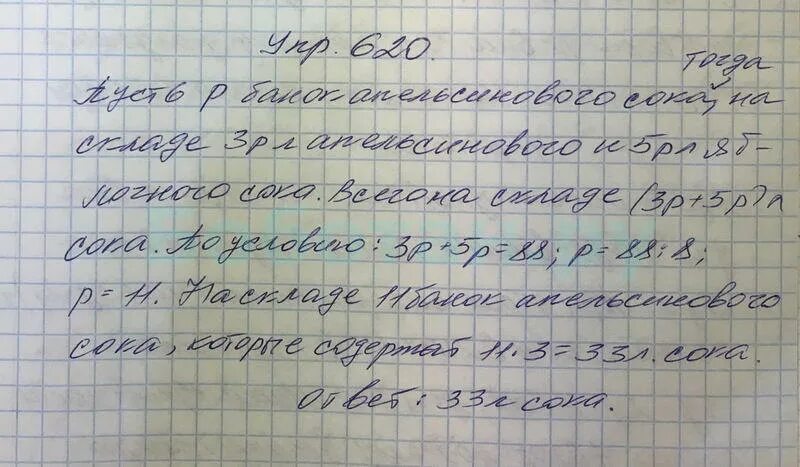 Упр. 620.
тогда
Пусть p банок апельсинового сока, на
складе 3p л апельсинового и 5p л яб-
лочного сока. Всего на складе (3p+5p) л
сока. По условию: 3p+5p=88; p=88:8;
p=11. На складе 11 банок апельсинового
сока, которые содержат 11·3=33 л. сока.
Ответ: 33 л сока.